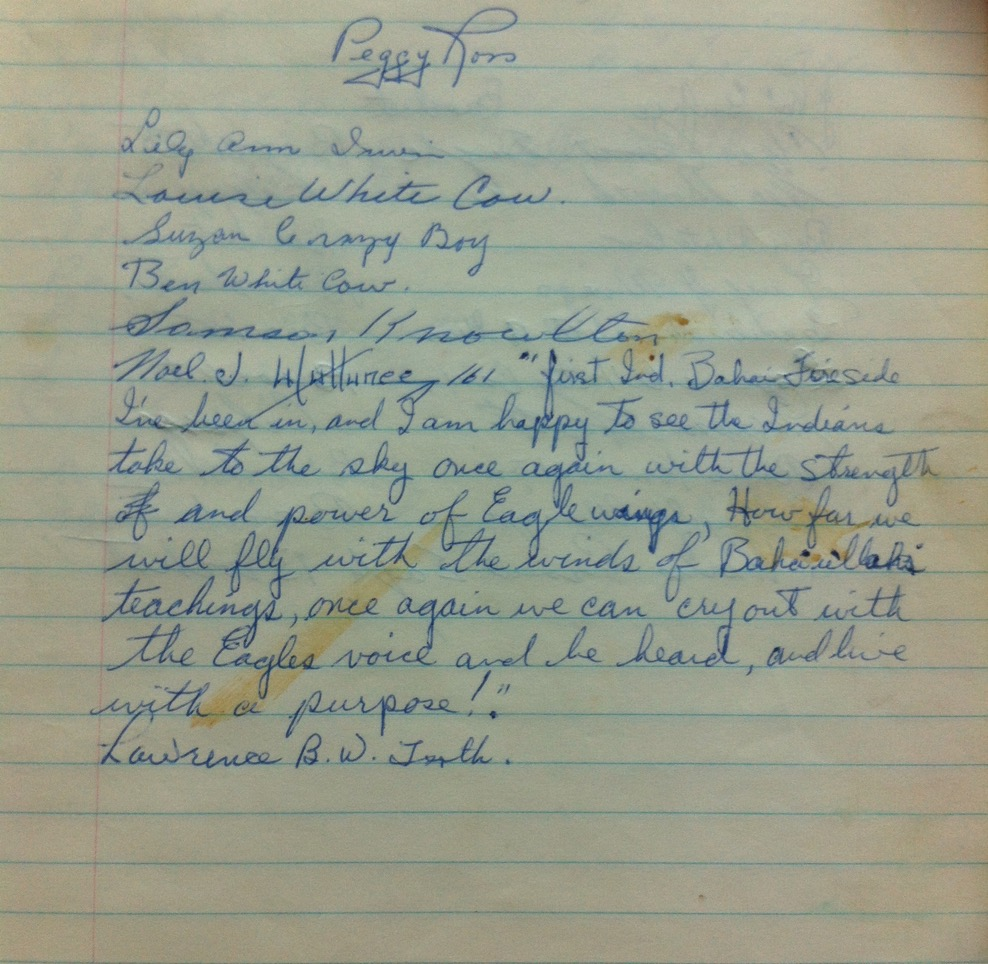 Peggy Ross
Lily Ann Irwin
Louise White Cow.
Suzan Crazy Boy
Ben White Cow.
Samson Knowlton
Noel. J. Wuttunee 161 "first Ind. Bahai Fireside
I've been in, and I am happy to see the Indians
take to the sky once again with the strength
of and power of Eagle wings, How far we
will fly with the winds of Bahaullahs
teachings, once again we can cry out with
the Eagles voice and be heard, and live
with a purpose!."
Lawrence B. W. Tooth.